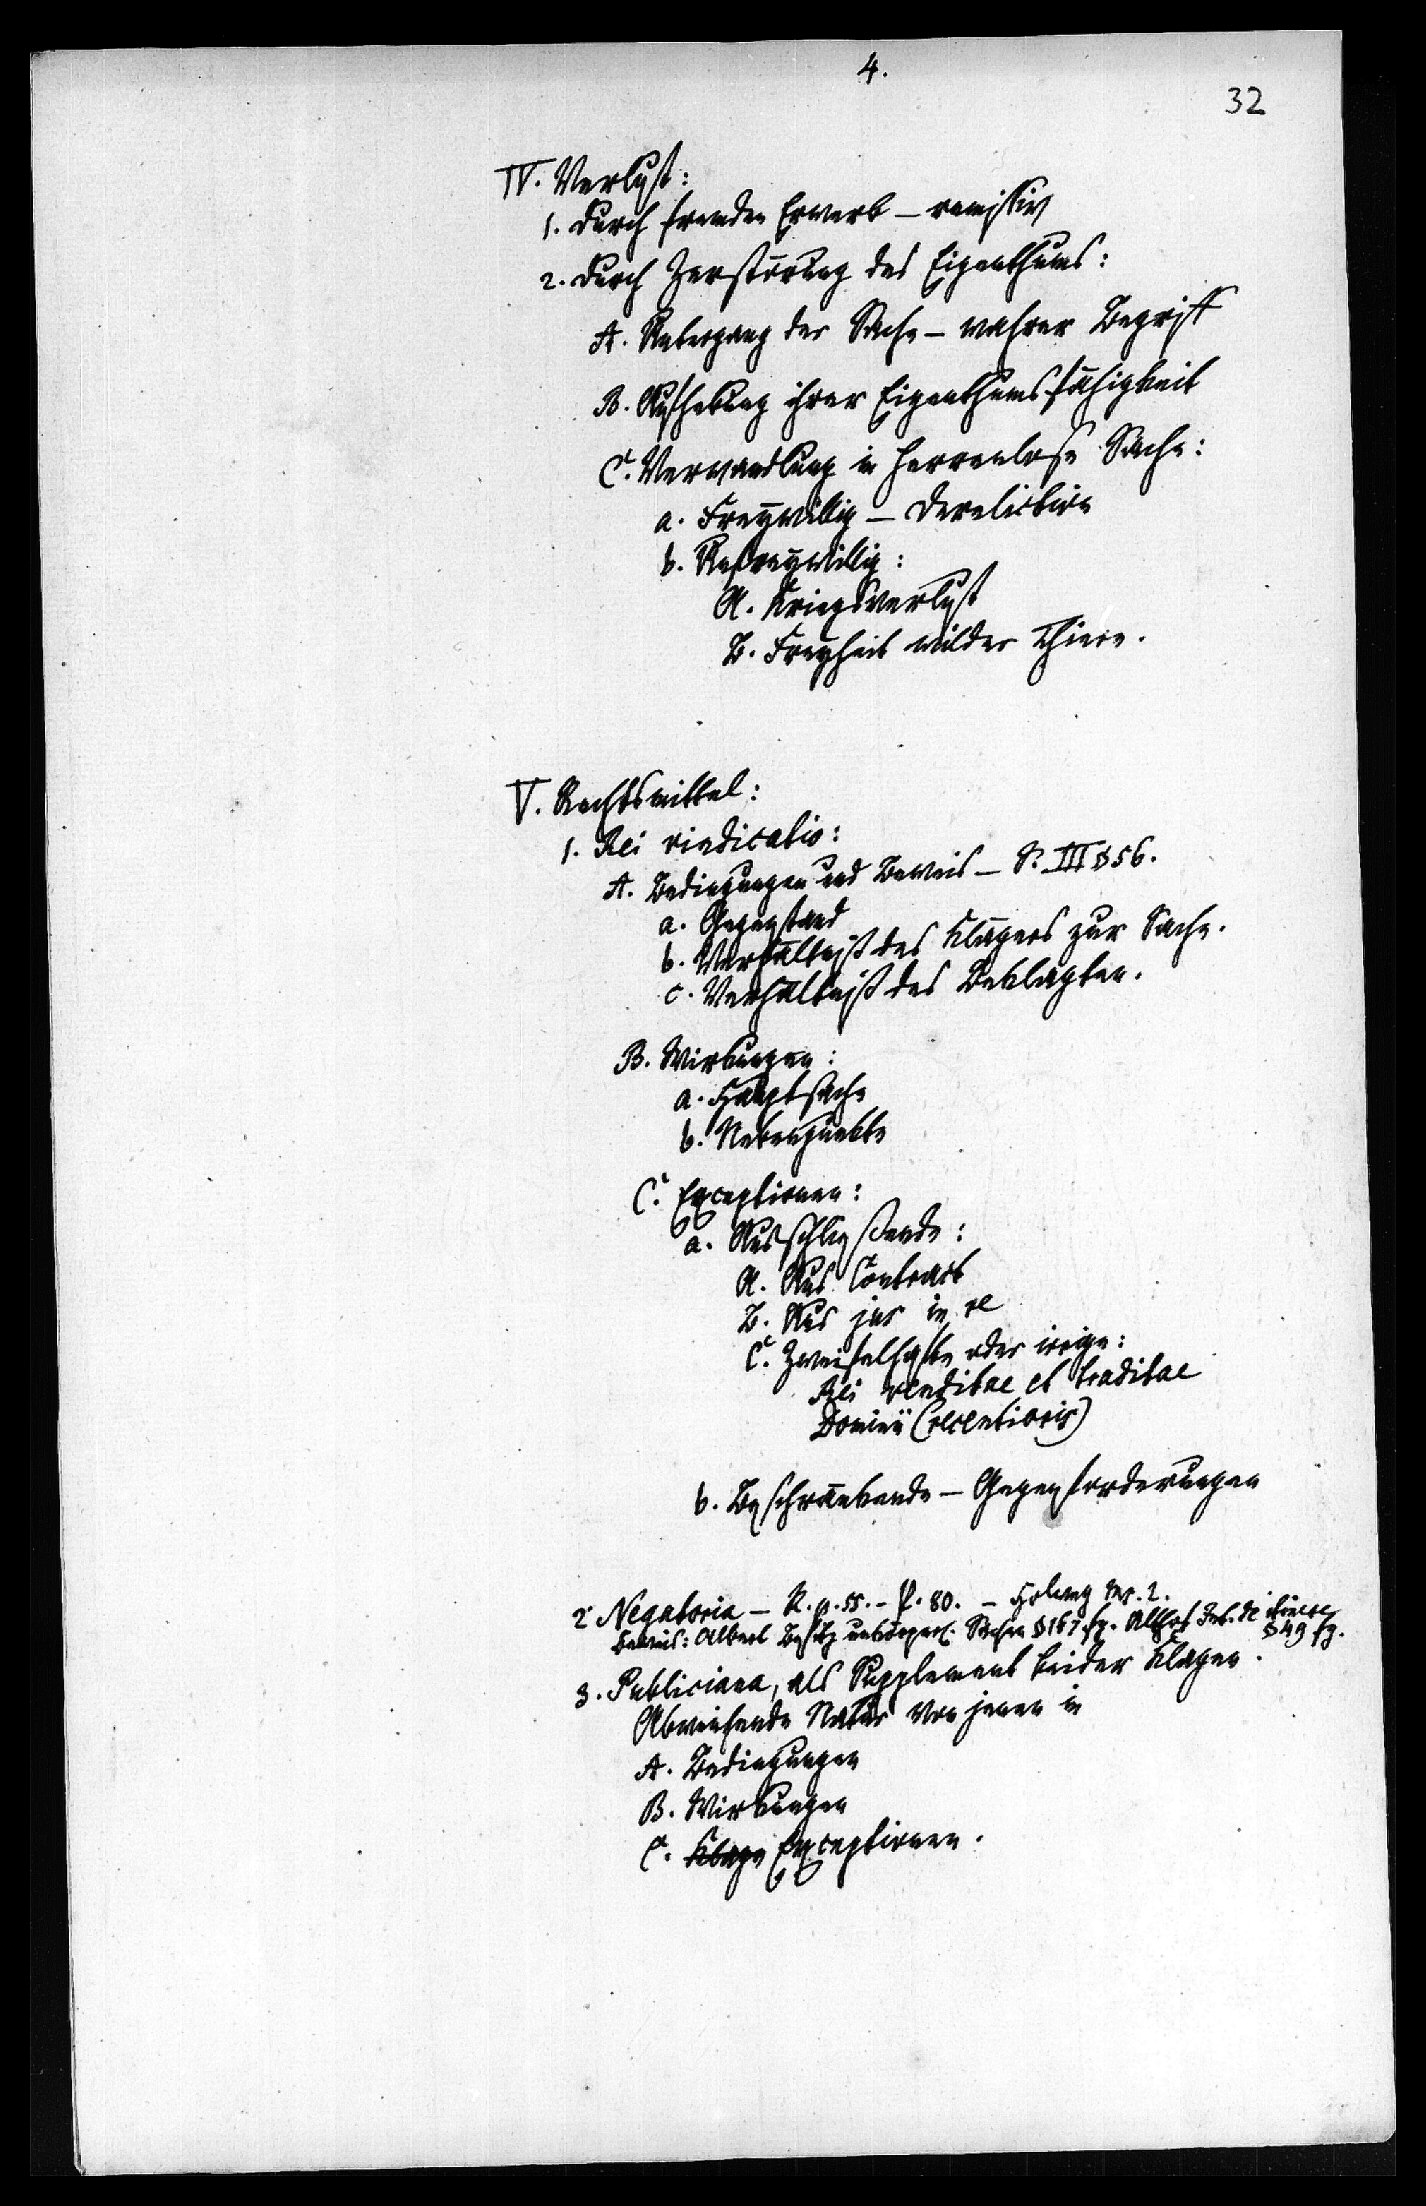 4.
32
IV. Verlust:
1. durch fremden Erwerb – remissiv
2. durch Zerstörung des Eigenthums:
A. Untergang der Sache – wahrer Begriff
B. Aufhebung ihrer Eigenthumsfähigkeit
C. Verwandlung in herrenlose Sache:
a. Freywillig – Dereliction
b. Unfreywillig:
A. Kriegsverlust
B. Freyheit wilder Thiere.
V. Rechtsmittel:
1. Rei vindicatio:
A. Bedingungen und Beweis – S. III § 56.
a. Gegenstand
b. Verhältniß des Klägers zur Sache.
c. Verhältniß des Beklagten.
B. Wirkungen:
a. Hauptsache
b. Nebenpunkte
C. Exceptionen:
a. Ausschließende:
A. Aus Contract
B. Aus jus in re
C. Zweifelhafte oder irrige:
Rei venditae et traditae
Dominii (recentioris)
b. Beschränkende – Gegenforderungen
2. Negatoria – R. p. 55. – P. 80. –
Beweis: Albert Besitz unkörperl. Sachen § 167. fg. Althof Int. de itinere
§ 49 fg.
3. Publiciana, als Supplement beider Klagen.
Abweichende Natur von jenen in
A. Bedingungen
B. Wirkungen
C. Klage Exceptionen.